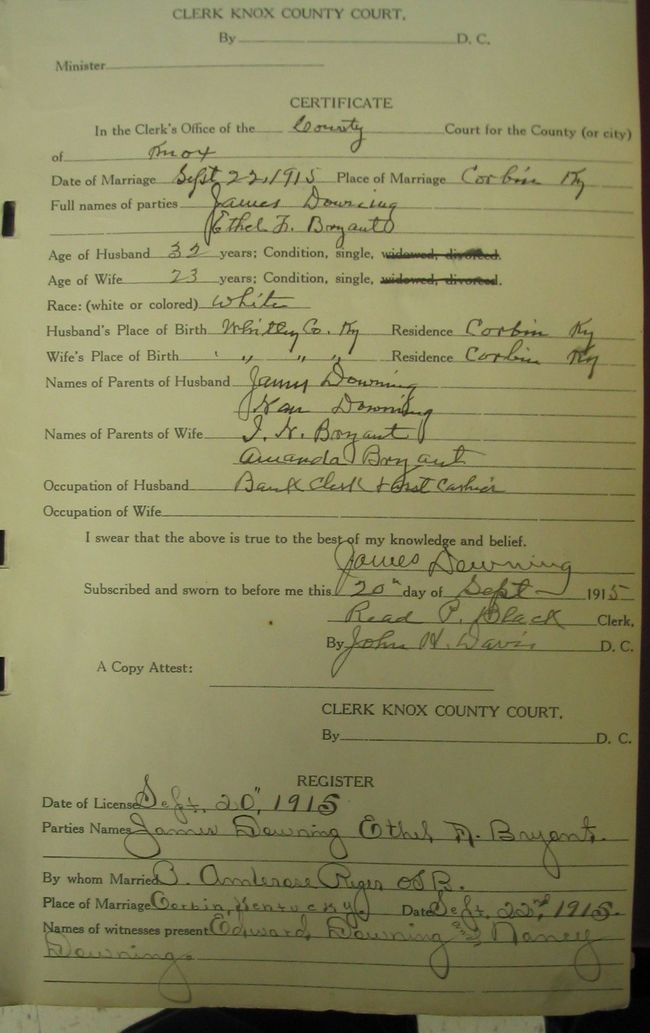 CLERK KNOX COUNTY COURT.
By D. C.
Minister
CERTIFICATE
In the Clerk's Office of the County Court for the County (or city)
of Knox
Date of Marriage Sept 22, 1915 Place of Marriage Corbin Ky
Full names of parties James Downing
Ethel Bryant
Age of Husband 32 years; Condition, single, widowed, divorced.
Age of Wife 23 years; Condition, single, widowed, divorced.
Race: (white or colored) White
Husband's Place of Birth Whitley Co. Ky Residence Corbin Ky
Wife's Place of Birth " " " " Residence Corbin Ky
Names of Parents of Husband James Downing
Nan Downing
Names of Parents of Wife Bryant
Amanda Bryant
Occupation of Husband Bank Clerk + Asst Cashier
Occupation of Wife
I swear that the above is true to the best of my knowledge and belief.
James Downing
Subscribed and sworn to before me this 20" day of Sept 1915
Read P. Black Clerk,
By John H. Davis D. C.
A Copy Attest:
CLERK KNOX COUNTY COURT.
By D. C.
REGISTER
Date of License Sept. 20", 1915
Parties Names James Downing Ethel Bryant.
By whom Married B. Ambrose OSB.
Place of Marriage Corbin, Kentucky. Date Sept. 22nd, 1915.
Names of witnesses present Edward Downing and Nancy
Downing.